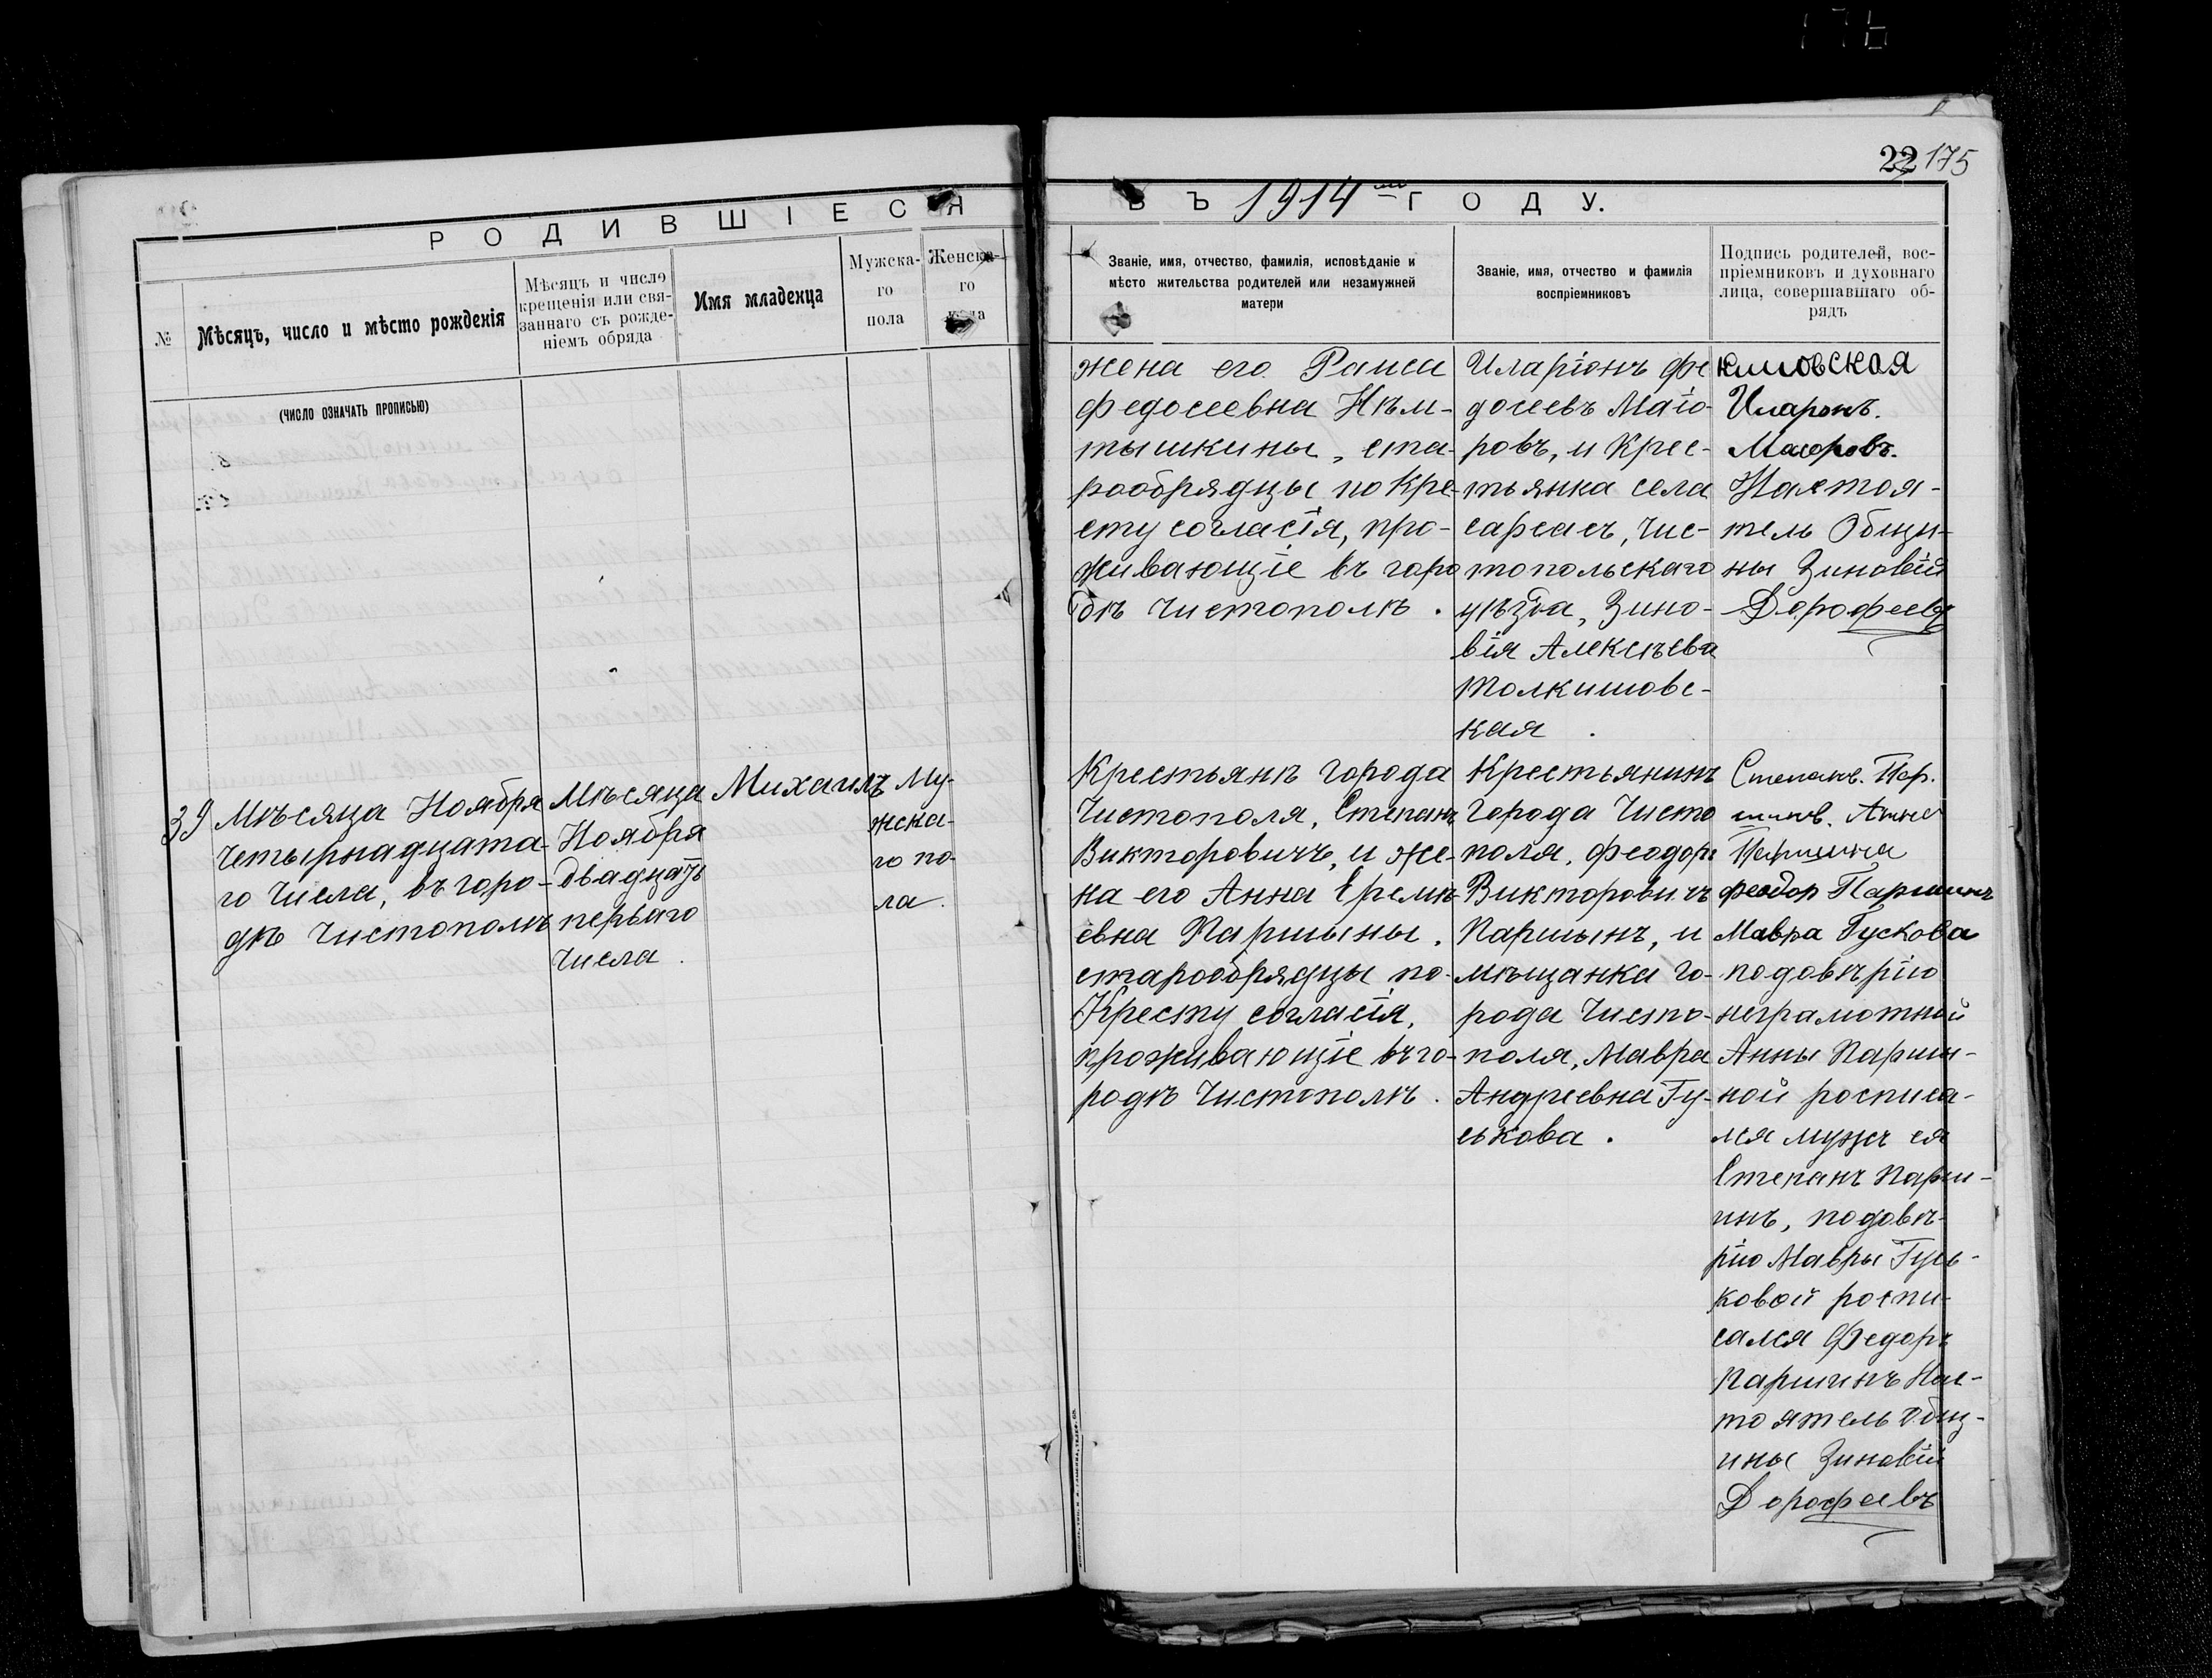 22 175
РОДИВШІЕСЯ
ВЪ 1914 м ГОДУ.
№
Мѣсяцъ, число и мѣсто рожденія
(ЧИСЛО ОЗНАЧАТЬ ПРОПИСЬЮ)
Мѣсяцъ и число
крещенія или свя-
заннаго съ рожде-
ніемъ обряда
Имя младенца
Мужска-
го
пола
Женска-
го
пола
Званіе, имя, отчество, фамилія, исповѣданіе и
мѣсто жительства родителей или незамужней
матери
Званіе, имя, отчество и фамилія
воспріемниковъ
Подпись родителей, вос-
пріемниковъ и духовнаго
лица, совершавшаго об-
рядъ
жена его Раиса
Федосеевна Нѣм-
тышкины, ста-
рообрядцы по Кре-
сту согласія, про-
живающіе въ горо
дѣ Чистополѣ.
Иларіонъ Фе
досеевъ Маіо-
ровъ, и Крес-
тьянка села
сарсасъ, Чис-
топольскаго
уѣзда, Зино-
вія Алексѣева
Толкишовс-
кая.
кишовская
Иларонъ.
Маеровъ.
Настоя-
тель Общи-
ны Зиновій
Дорофеевъ
39
Мѣсяца Ноября
Четырнадцата-
го Числа, въ горо-
дѣ Чистополѣ
Мѣсяца
Ноября
Двадцать
перваго
Числа.
Михаилъ
Му-
жска-
го по-
ла.
Крестьянѣ Города
Чистополя, Степанъ
Викторовичъ, и же-
на его Анна Еремѣ-
евна Паршины,
старообрядцы по-
Кресту согласія,
проживающіе въ го-
родѣ Чистополѣ.
Крестьянинъ
Города Чисто
поля, Феодоръ
Викторовичъ
Паршынъ, и
мѣщанка Го-
рода Чисто-
поля, Мавра
Андреевна Гу-
ськова.
Степанъ. Пар.
шинъ. Анна
Паршина
Феодор Паршинъ
Мавра Гускова
подовѣрію
неграмотной
Анны Парши-
ной росписа-
лся мужъ ея
Степанъ Парш-
инъ, подовѣ-
рію Мавры Гусь-
ковой роспи-
сался Федоръ
Паршинъ Нас-
тоятель Общ-
ины Зиновій
Дорофеевъ